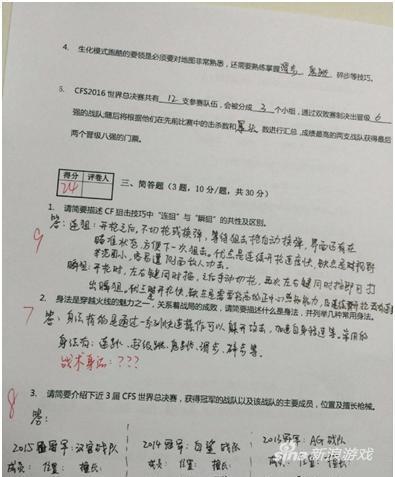 4. 生化模式跑酷的要领是必须要对地图非常熟悉，还需要熟练掌握滑步 鬼跳 碎步等技巧。
5. CFS2016世界总决赛共有 12 支参赛队伍，会被分成 3 个小组，通过双败赛制决出晋级 6
强的战队;随后将根据他们在先前比赛中的击杀数和 数进行汇总，成绩最高的两支战队获得最后
两个晋级八强的门票。
得分 评卷人
24
三、简答题（3题，10分/题，共30分）
1. 请简要描述CF狙击技巧中“连狙”与“瞬狙”的共性及区别。
9
答：连狙：开枪之后，不切枪或换弹，等待狙击枪自动换弹，界面还有在
瞄准状态，方便下一次狙击。优点是连续开枪速度快，缺点是对视野
范围小，容易遭 人攻击。
瞬狙：开枪时，左右键同时按，之后手动切枪，再次左右键同时按即可打
出瞬狙，优点是开枪快，缺点是需要
2. 身法是穿越火线的魅力之一，关系着战局的成败，请简要描述什么是身法，并列举几种常用身法。
7
答：身法指的是通过一系列快速操作可以躲开攻击，加速自身移速等。常用的
身法有：连跳、超级跳、鬼跳、滑步、碎步等。
战术身法：???
3. 请简要介绍下近3届CFS世界总决赛，获得冠军的战队以及该战队的主要成员，位置及擅长枪械。
8
答：
2015 冠军：汉宫战队 2014冠军：白鲨战队 2013冠军：AG战队
成员： 位置： 擅长： 成员： 位置： 擅长： 成员： 位置： 擅长：
sina新浪游戏